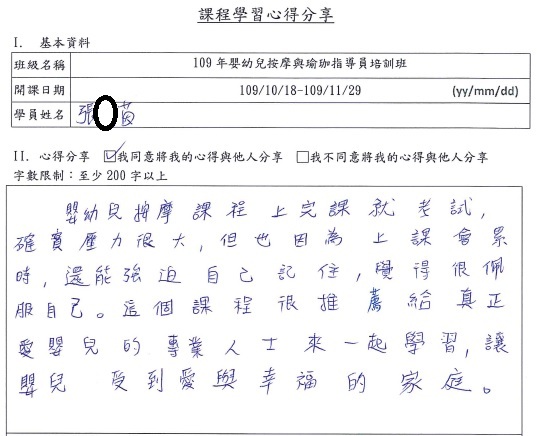 課程學習心得分享
I. 基本資料
班級名稱 109年嬰幼兒按摩與瑜珈指導員培訓班
開課日期 109/10/18-109/11/29 (yy/mm/dd)
學員姓名 張 苗
II. 心得分享 ☑我同意將我的心得與他人分享 ☐我不同意將我的心得與他人分享
字數限制：至少200字以上
嬰幼兒按摩課程上完課就考試，
確實壓力很大，但也因為上課會累
時，還能強迫自己記住，覺得很佩
服自己。這個課程很推薦給真正
愛嬰兒的專業人士來一起學習，讓
嬰兒 受到愛與幸福的家庭。